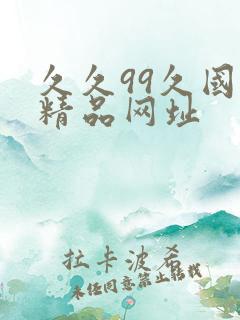 久久99久国
精品网址
拉卡波希
未经同意禁止转载